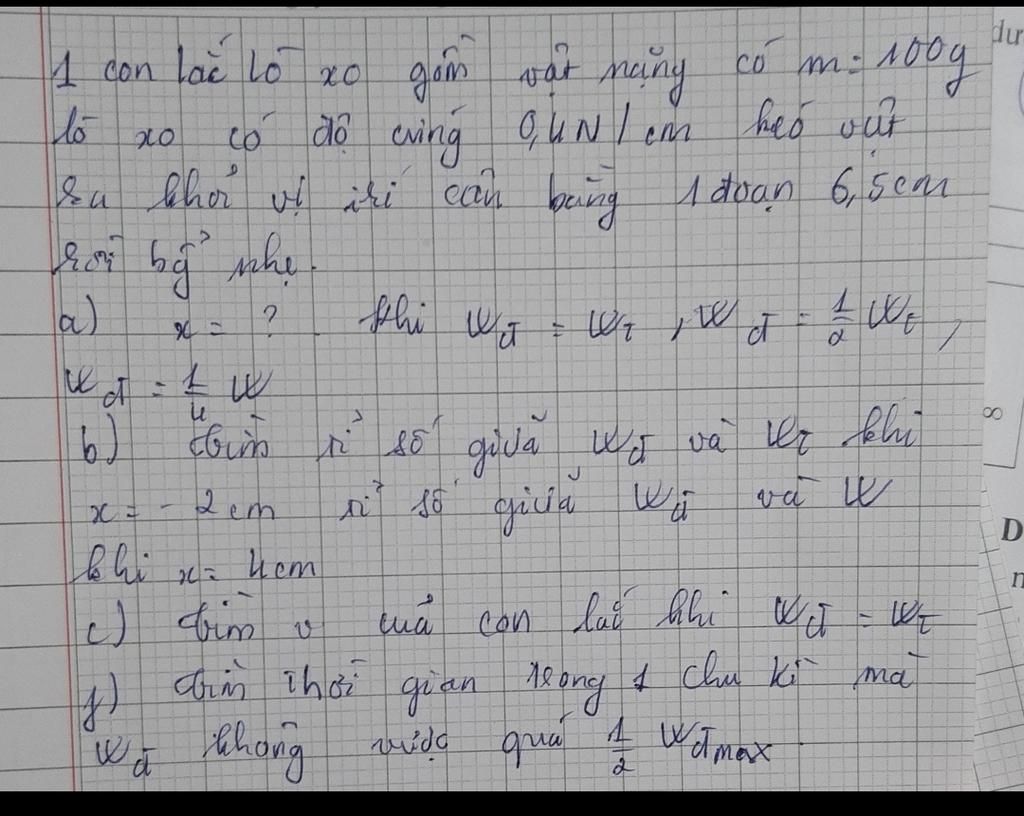 1 con lắc lò xo gồm vật nặng có m = 100g
lò xo có độ cứng 0,4N/cm kéo vật
ra khỏi vị trí cân bằng 1 đoạn 6,5cm
rồi bỏ nhẹ.
a) x = ? khi Wđ = Wt, Wđ = 1/2 Wt,
Wđ = 1/4 W
b) tìm tỉ số giữa Wđ và Wt khi
x = - 2cm tỉ số giữa Wđ và W
khi x = 4cm
c) tìm v của con lắc khi Wđ = Wt
f) tìm thời gian trong 1 chu kì mà
Wđ không vượt quá 1/2 Wđmax
dư
∞
D
n